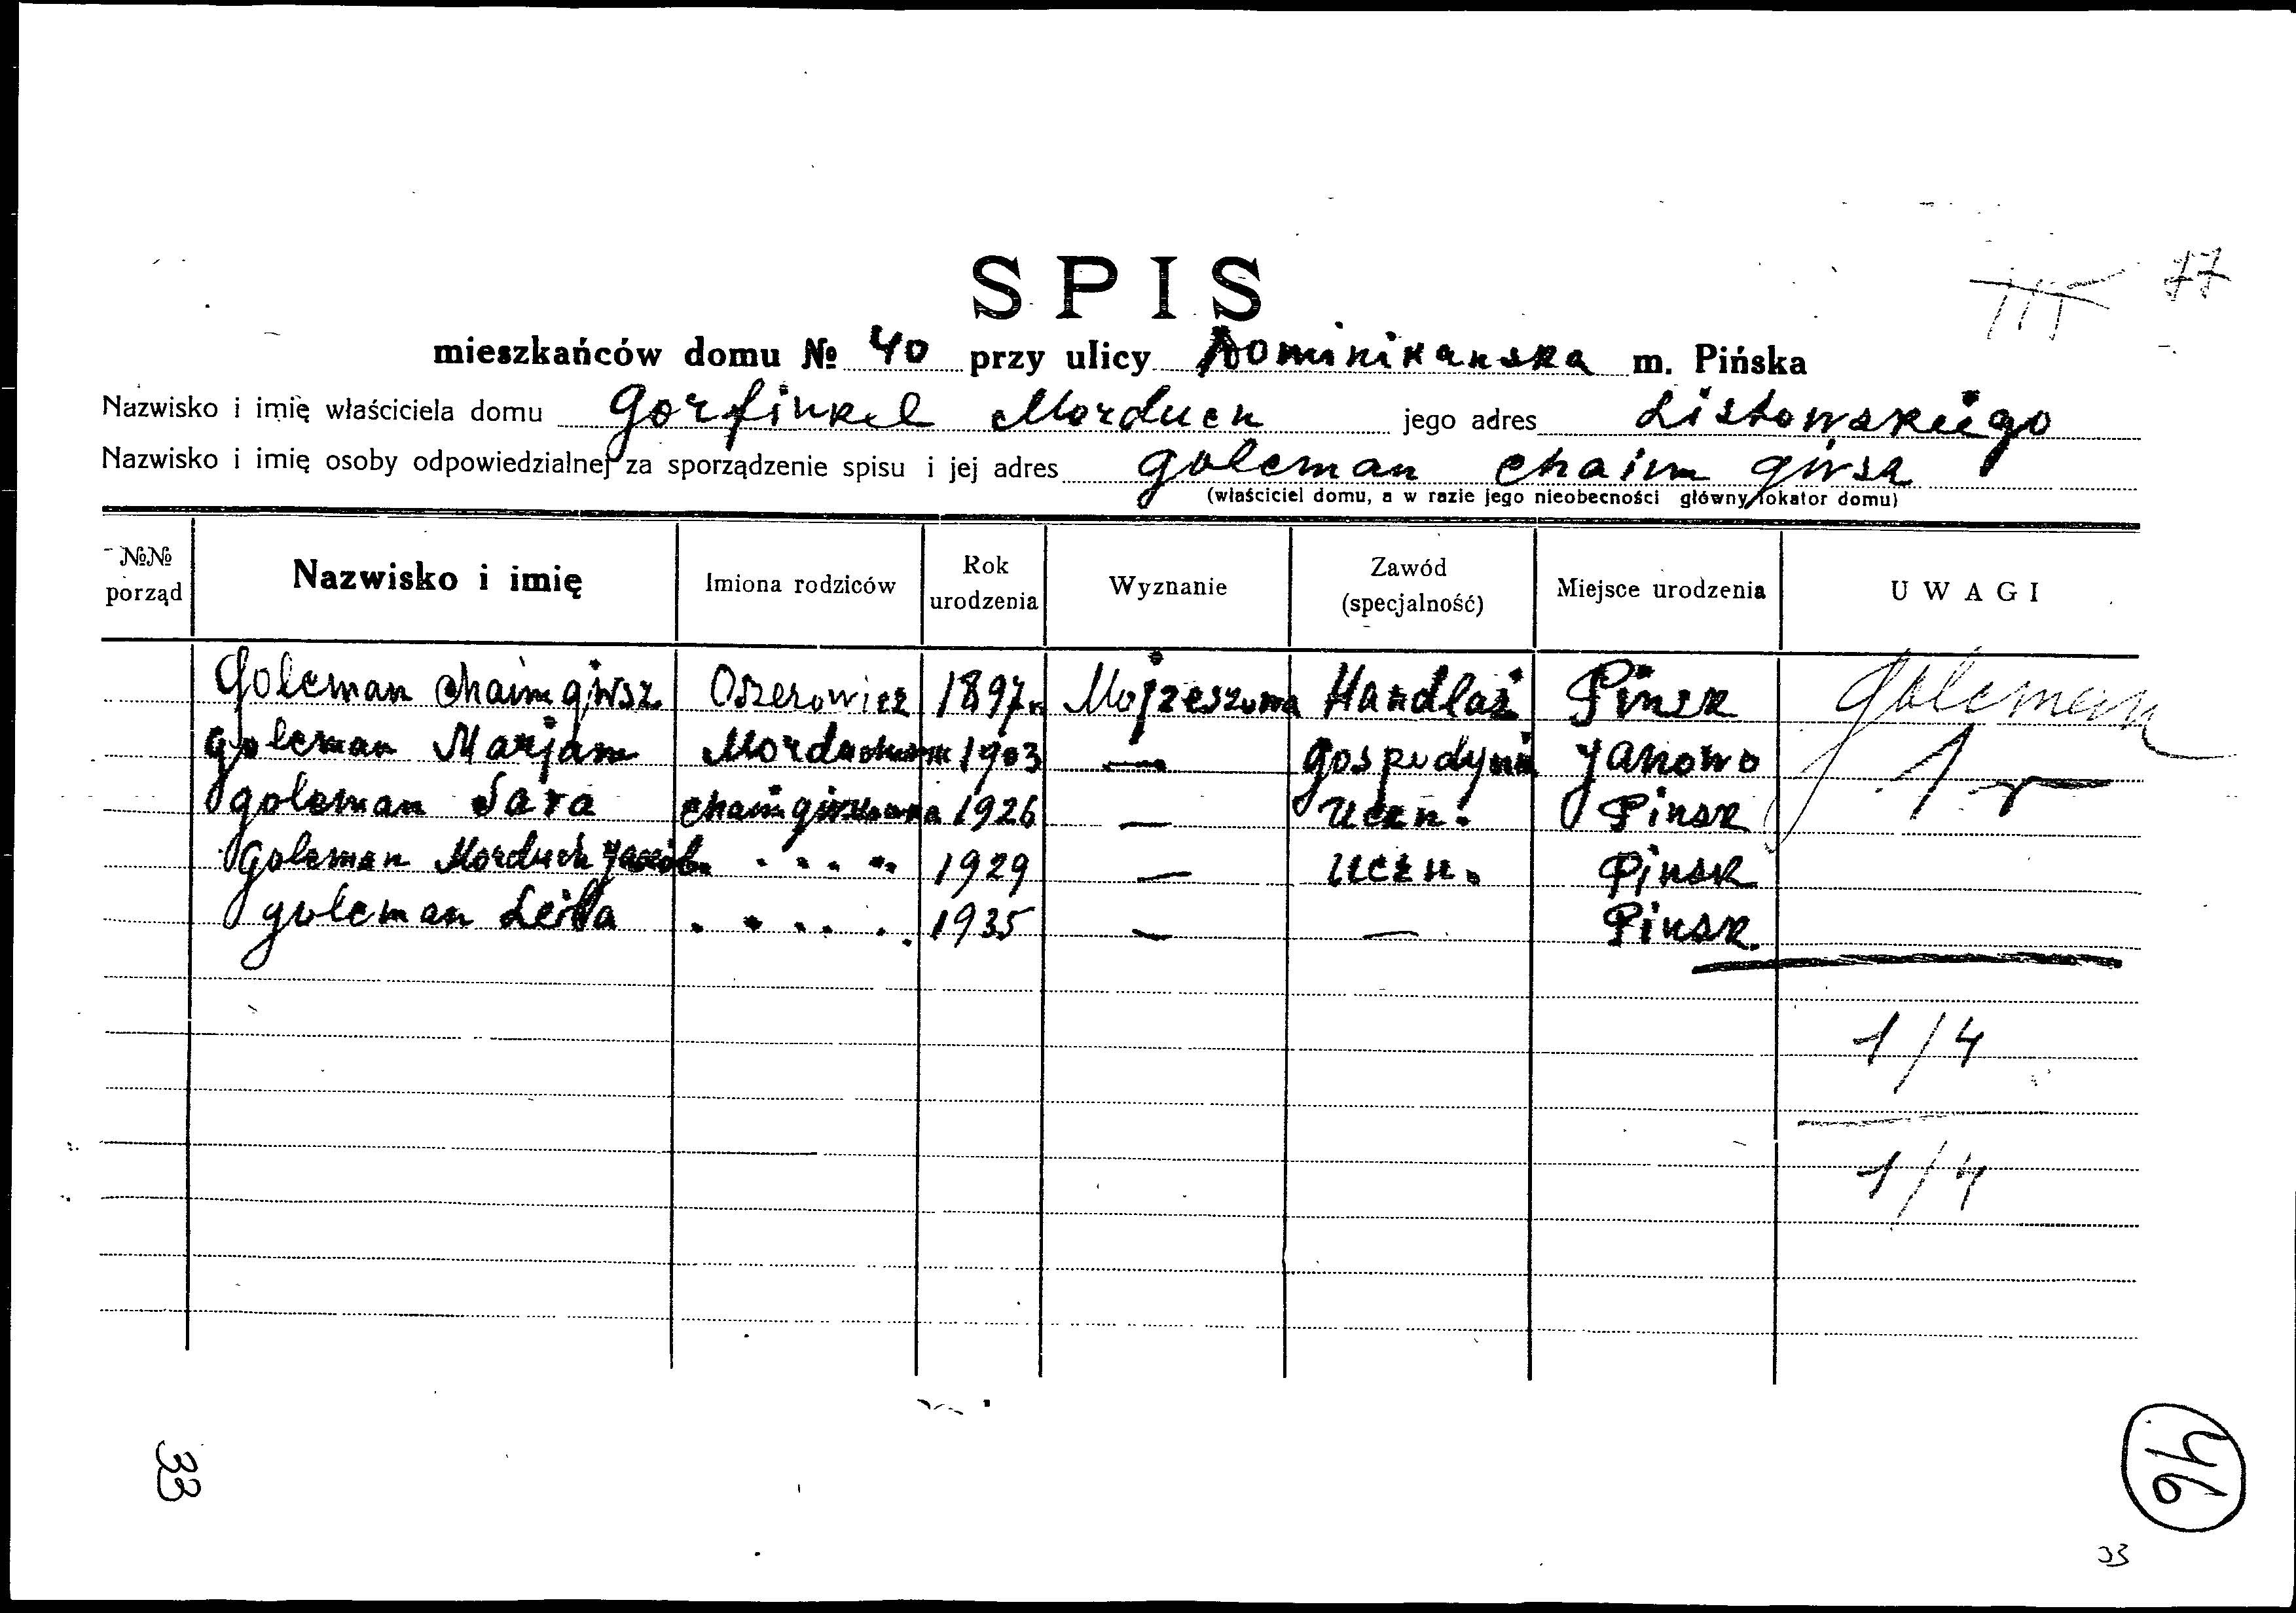 77
SPIS
mieszkańców domu № 40 przy ulicy Dominikanska m. Pińska
Nazwisko i imię właściciela domu Gorfinkel Morduch jego adres Listowskiego
Nazwisko i imię osoby odpowiedzialnej za sporządzenie spisu i jej adres Goleman Chaim Girsz
(właściciel domu, a w razie jego nieobecności główny lokator domu)
№№ porząd Nazwisko i imię Imiona rodziców Rok urodzenia Wyznanie Zawód (specjalność) Miejsce urodzenia UWAGI
Goleman Chaim Girsz Oszerowicz 1897 r. Mojzeszowa Handlaż Pinsk Goleman
Goleman Marjam 1903 — Gospodyni Janowo 1
Goleman Sara 1926 — Uczn. Pinsk
Goleman Morduch 1929 — Uczn. Pinsk
Goleman Leiba 1935 — — Pinsk
1/4
1/4
33
46
33